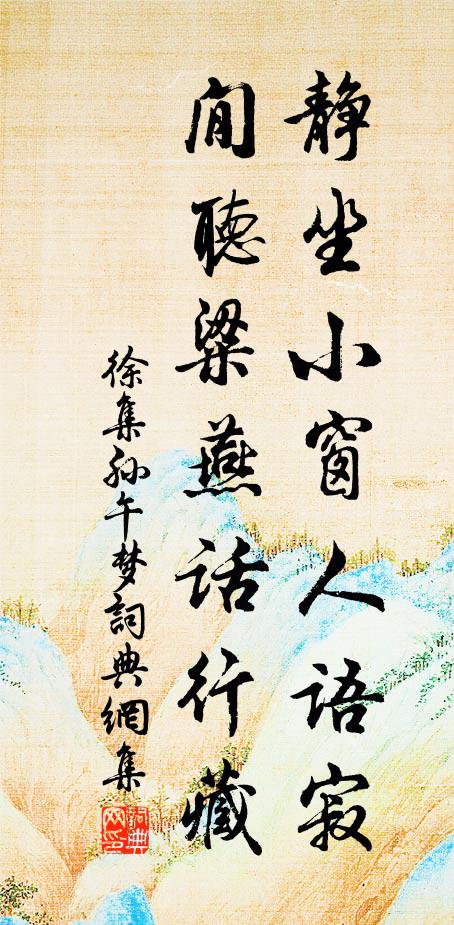 静坐小窗人语寂
闲聽梁燕话行藏
徐集孙午梦詞典網集
詞典
网印